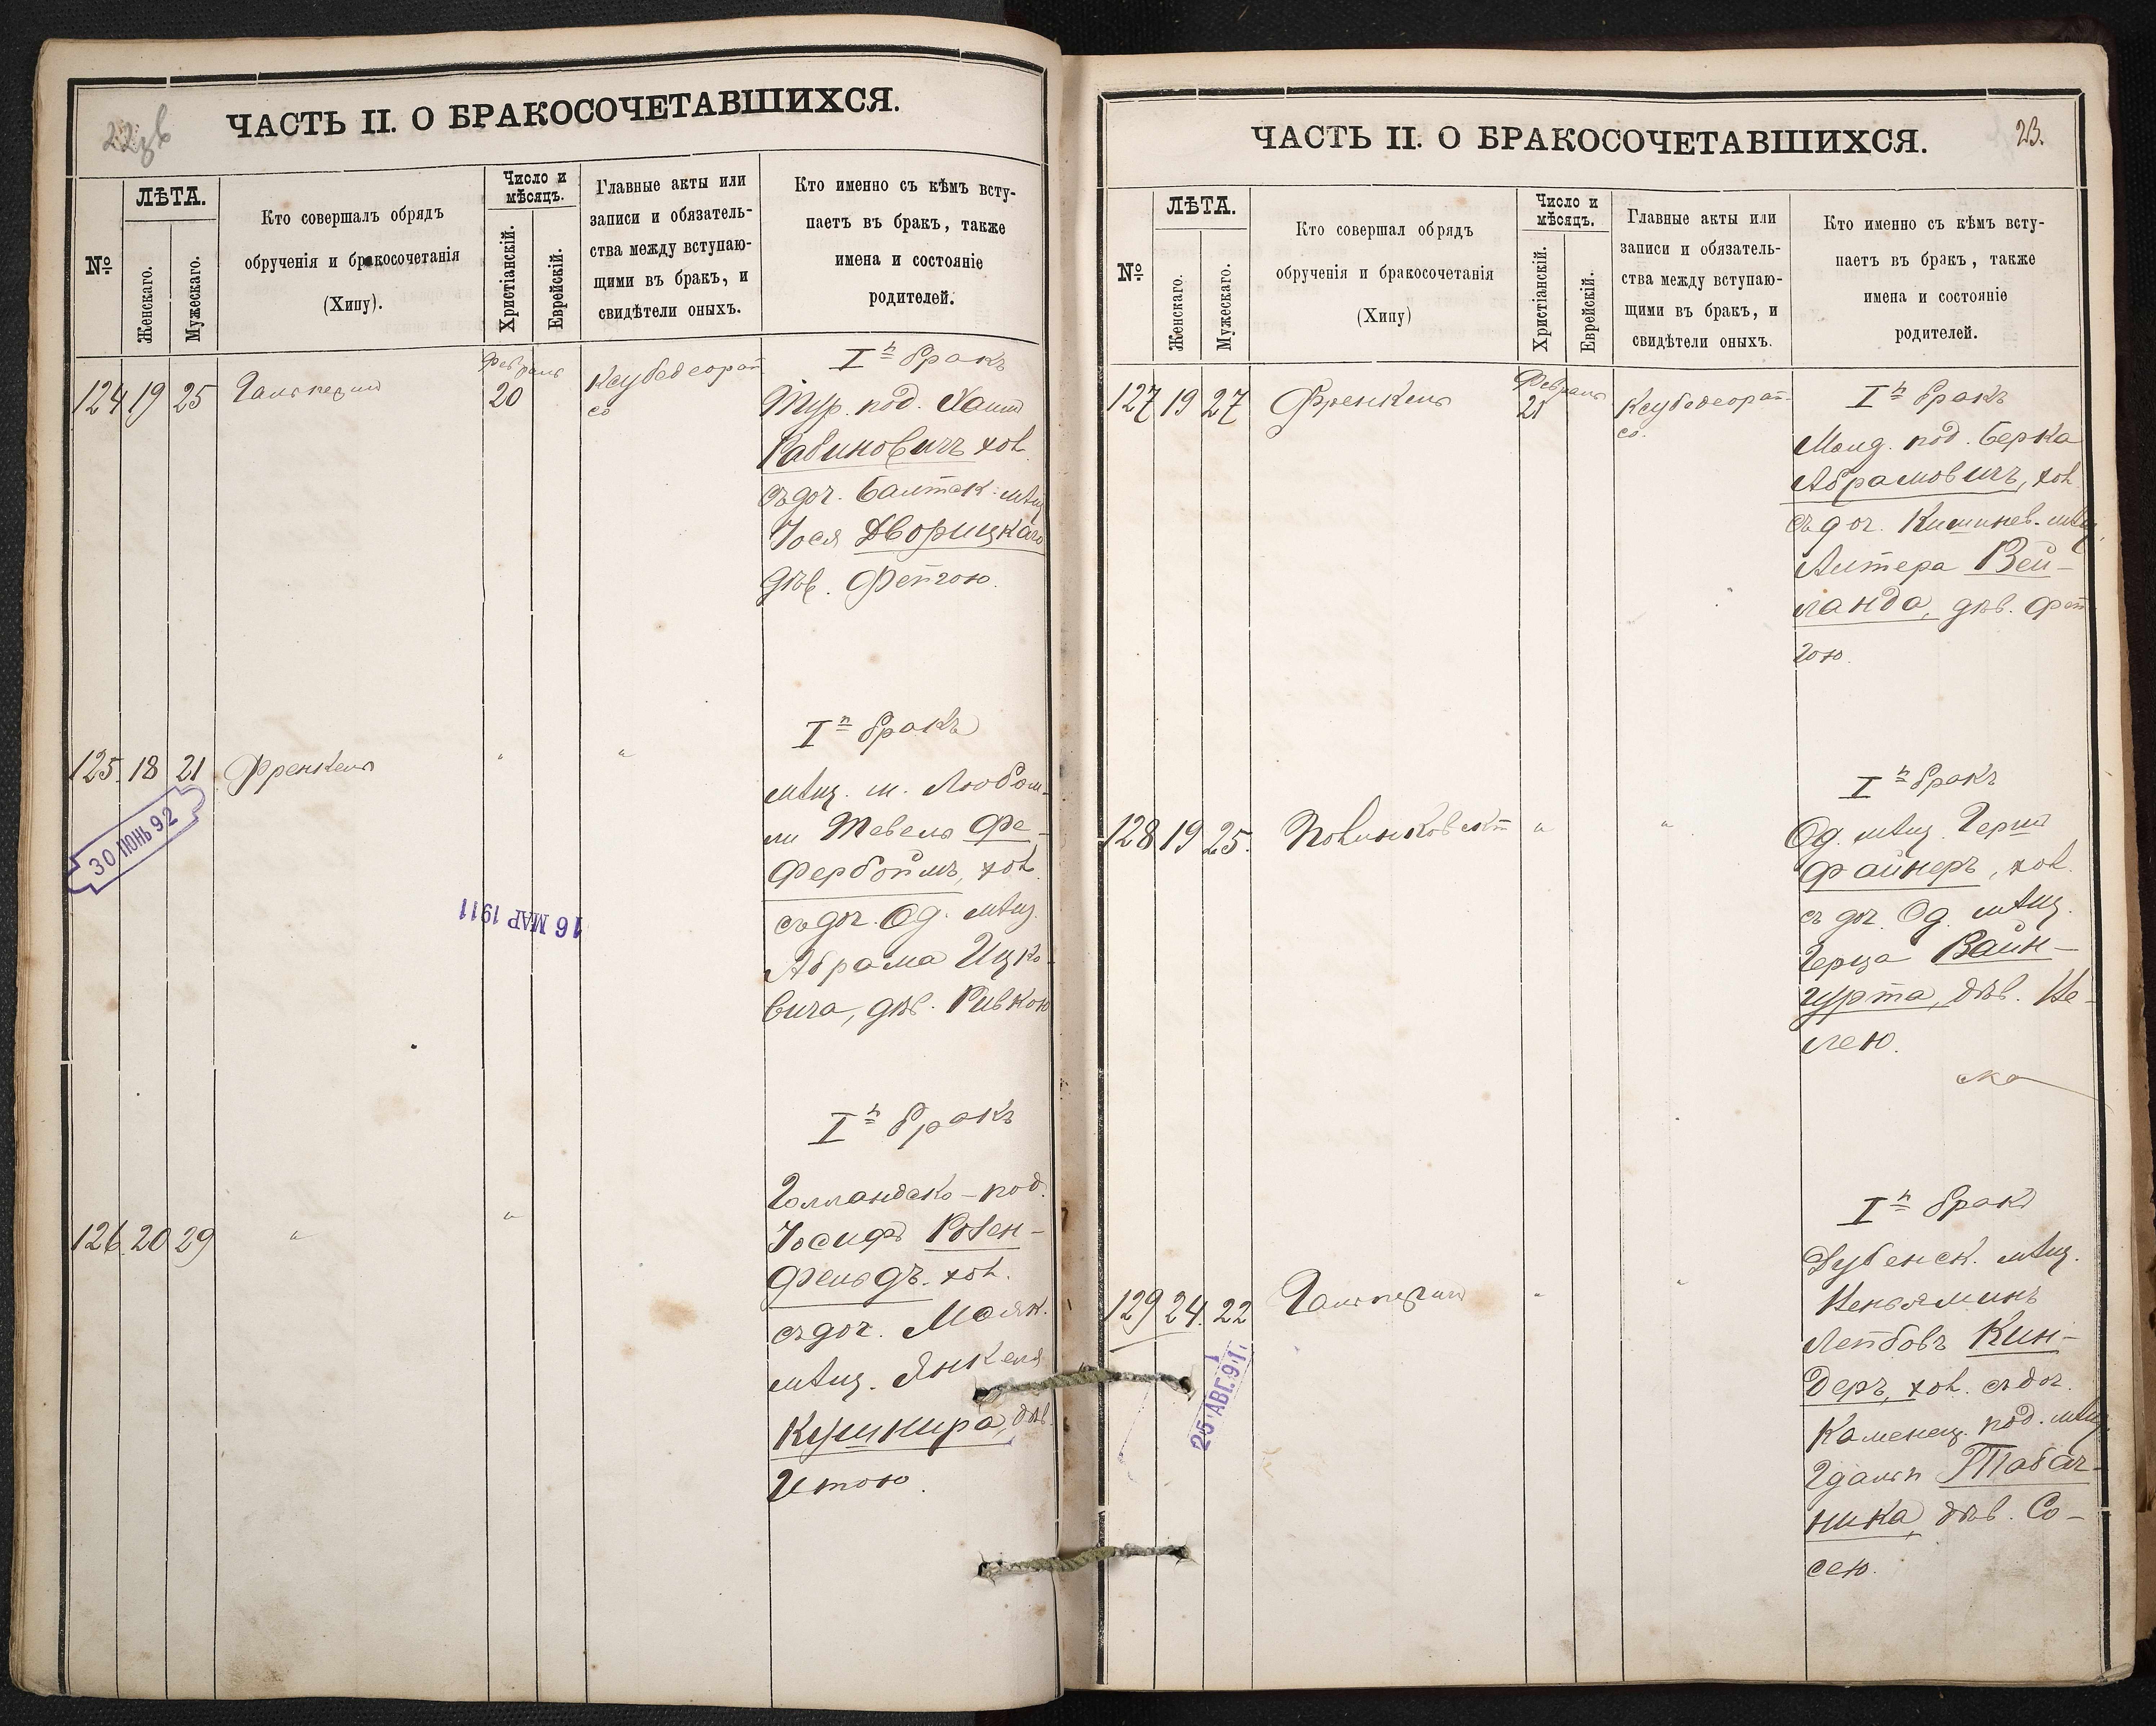 22
ЧАСТЬ II. О БРАКОСОЧЕТАВШИХСЯ.
№
ЛѢТА.
Женскаго.
Мужескаго.
Кто совершалъ обрядъ
обрученія и бракосочетанія
(Хипу).
Число и
мѣсяцъ.
Христіанскій.
Еврейскій.
Главные акты или
записи и обязатель-
ства между вступаю-
щими въ бракъ, и
свидѣтели оныхъ.
Кто именно съ кѣмъ всту-
паетъ въ бракъ, также
имена и состояніе
родителей.
124 19 25 Гальперин
Февраль
20
I й бракъ
Тур. под. Хаим
Рабиновичъ хол.
съ доч. Балтск. мѣщ
Іося Дворицкаго
дѣв. Фейгою.
125. 18 21 Френкель " "
30 ІЮНЬ 92
16 МАР 1911
I й бракъ
мѣщ. м. Любом-
ли Тевель Фе-
фербоймъ, хол.
съ доч. Од. мѣщ.
Абрама Ицко-
вича, дѣв. Ривкою
126. 20 29 " "
I й бракъ
Голландско-под.
Іосифъ Розен-
фельдъ. хол.
съ доч. Маяк.
мѣщ. Янкеля
Кушнира, дѣв.
Итою.
ЧАСТЬ II. О БРАКОСОЧЕТАВШИХСЯ.
23.
№
ЛѢТА.
Женскаго.
Мужескаго.
Кто совершал обрядъ
обрученія и бракосочетанія
(Хипу)
Число и
мѣсяцъ.
Христіанскій.
Еврейскій.
Главные акты или
записи и обязатель-
ства между вступаю-
щими въ бракъ, и
свидѣтели оныхъ.
Кто именно съ кѣмъ всту-
паетъ въ бракъ, также
имена и состояніе
родителей.
127 19 27 Френкель
Февраль
21
I й бракъ
Молд. под. Берка
Абрамовичъ, хол.
съ доч. Кишинев. мѣщ.
Алтера Вей-
ланда, дѣв. Фей
гою.
128 19 25. " "
I й бракъ
Од. мѣщ. Герш
Файнеръ, хол.
съ доч. Од. мѣщ.
Герца Вайн-
гурта, дѣв. Не-
лею.
129 24. 22 Гальперин " "
25 АВГ. 91.
I й бракъ
Дубенск. мѣщ.
Беньяминъ
Лейбовъ Кин-
деръ, хол. съ доч.
Каменец. под. мѣщ.
Гдаля Табач-
ника, дѣв. Со-
сею.